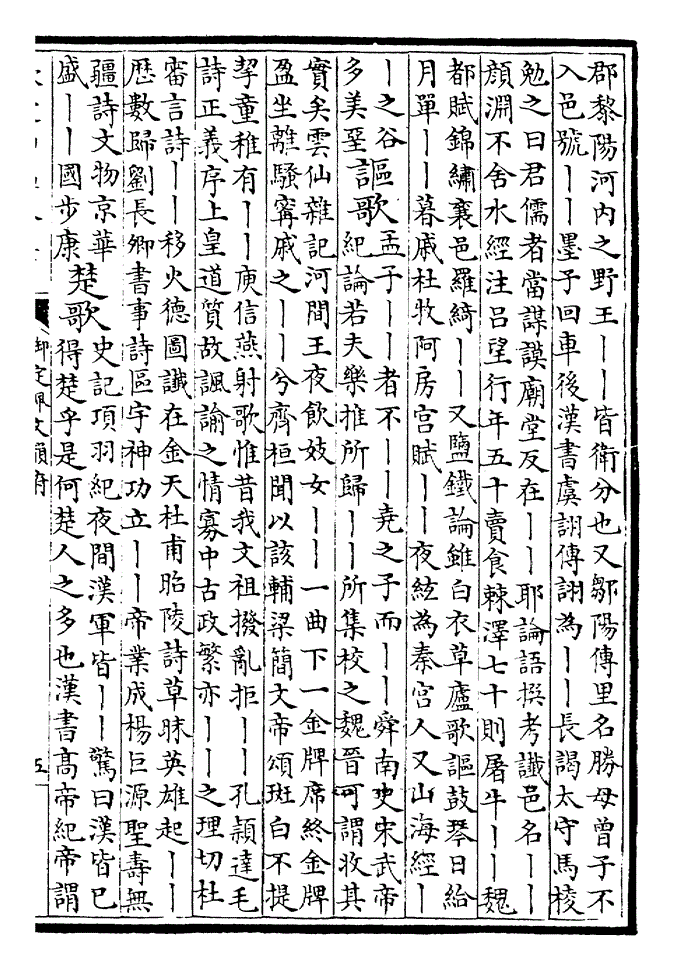 郡黎陽河内之野王丨丨皆衛分也又鄒陽傳里名勝母曾子不
入邑號丨丨墨子回車後漢書虞詡傳詡為丨丨長謁太守馬稜
勉之曰君儒者當謀謨廟堂反在丨丨耶論語撰考讖邑名丨丨
顔淵不舍水經注吕望行年五十賣食棘澤七十則屠牛丨丨魏
都賦錦繡襄邑羅綺丨丨又鹽鐵論雖白衣草廬歌謳鼓琴日給
月單丨丨暮戚杜牧阿房宫賦丨丨夜絃為秦宫人又山海經丨
丨之谷
多美堊
謳歌
孟子丨丨者不丨丨堯之子而丨丨舜南史宋武帝
紀論若夫樂推所歸丨丨所集校之魏晉可謂收其
實矣雲仙雜記河間王夜飲妓女丨丨一曲下一金牌席終金牌
盈坐離騷寗戚之丨丨兮齊桓聞以該輔梁簡文帝頌斑白不提
挈童稚有丨丨庾信燕射歌惟昔我文祖撥亂拒丨丨孔頴達毛
詩正義序上皇道質故諷諭之情寡中古政繁亦丨丨之理切杜
審言詩丨丨移火德圖讖在金天杜甫昭陵詩草昧英雄起丨丨
歴數歸劉長卿書事詩區宇神功立丨丨帝業成楊巨源聖壽無
疆詩文物京華
盛丨丨國步康
楚歌
史記項羽紀夜間漢軍皆丨丨驚曰漢皆已
得楚乎是何楚人之多也漢書髙帝紀帝謂
御定佩文韻府
五